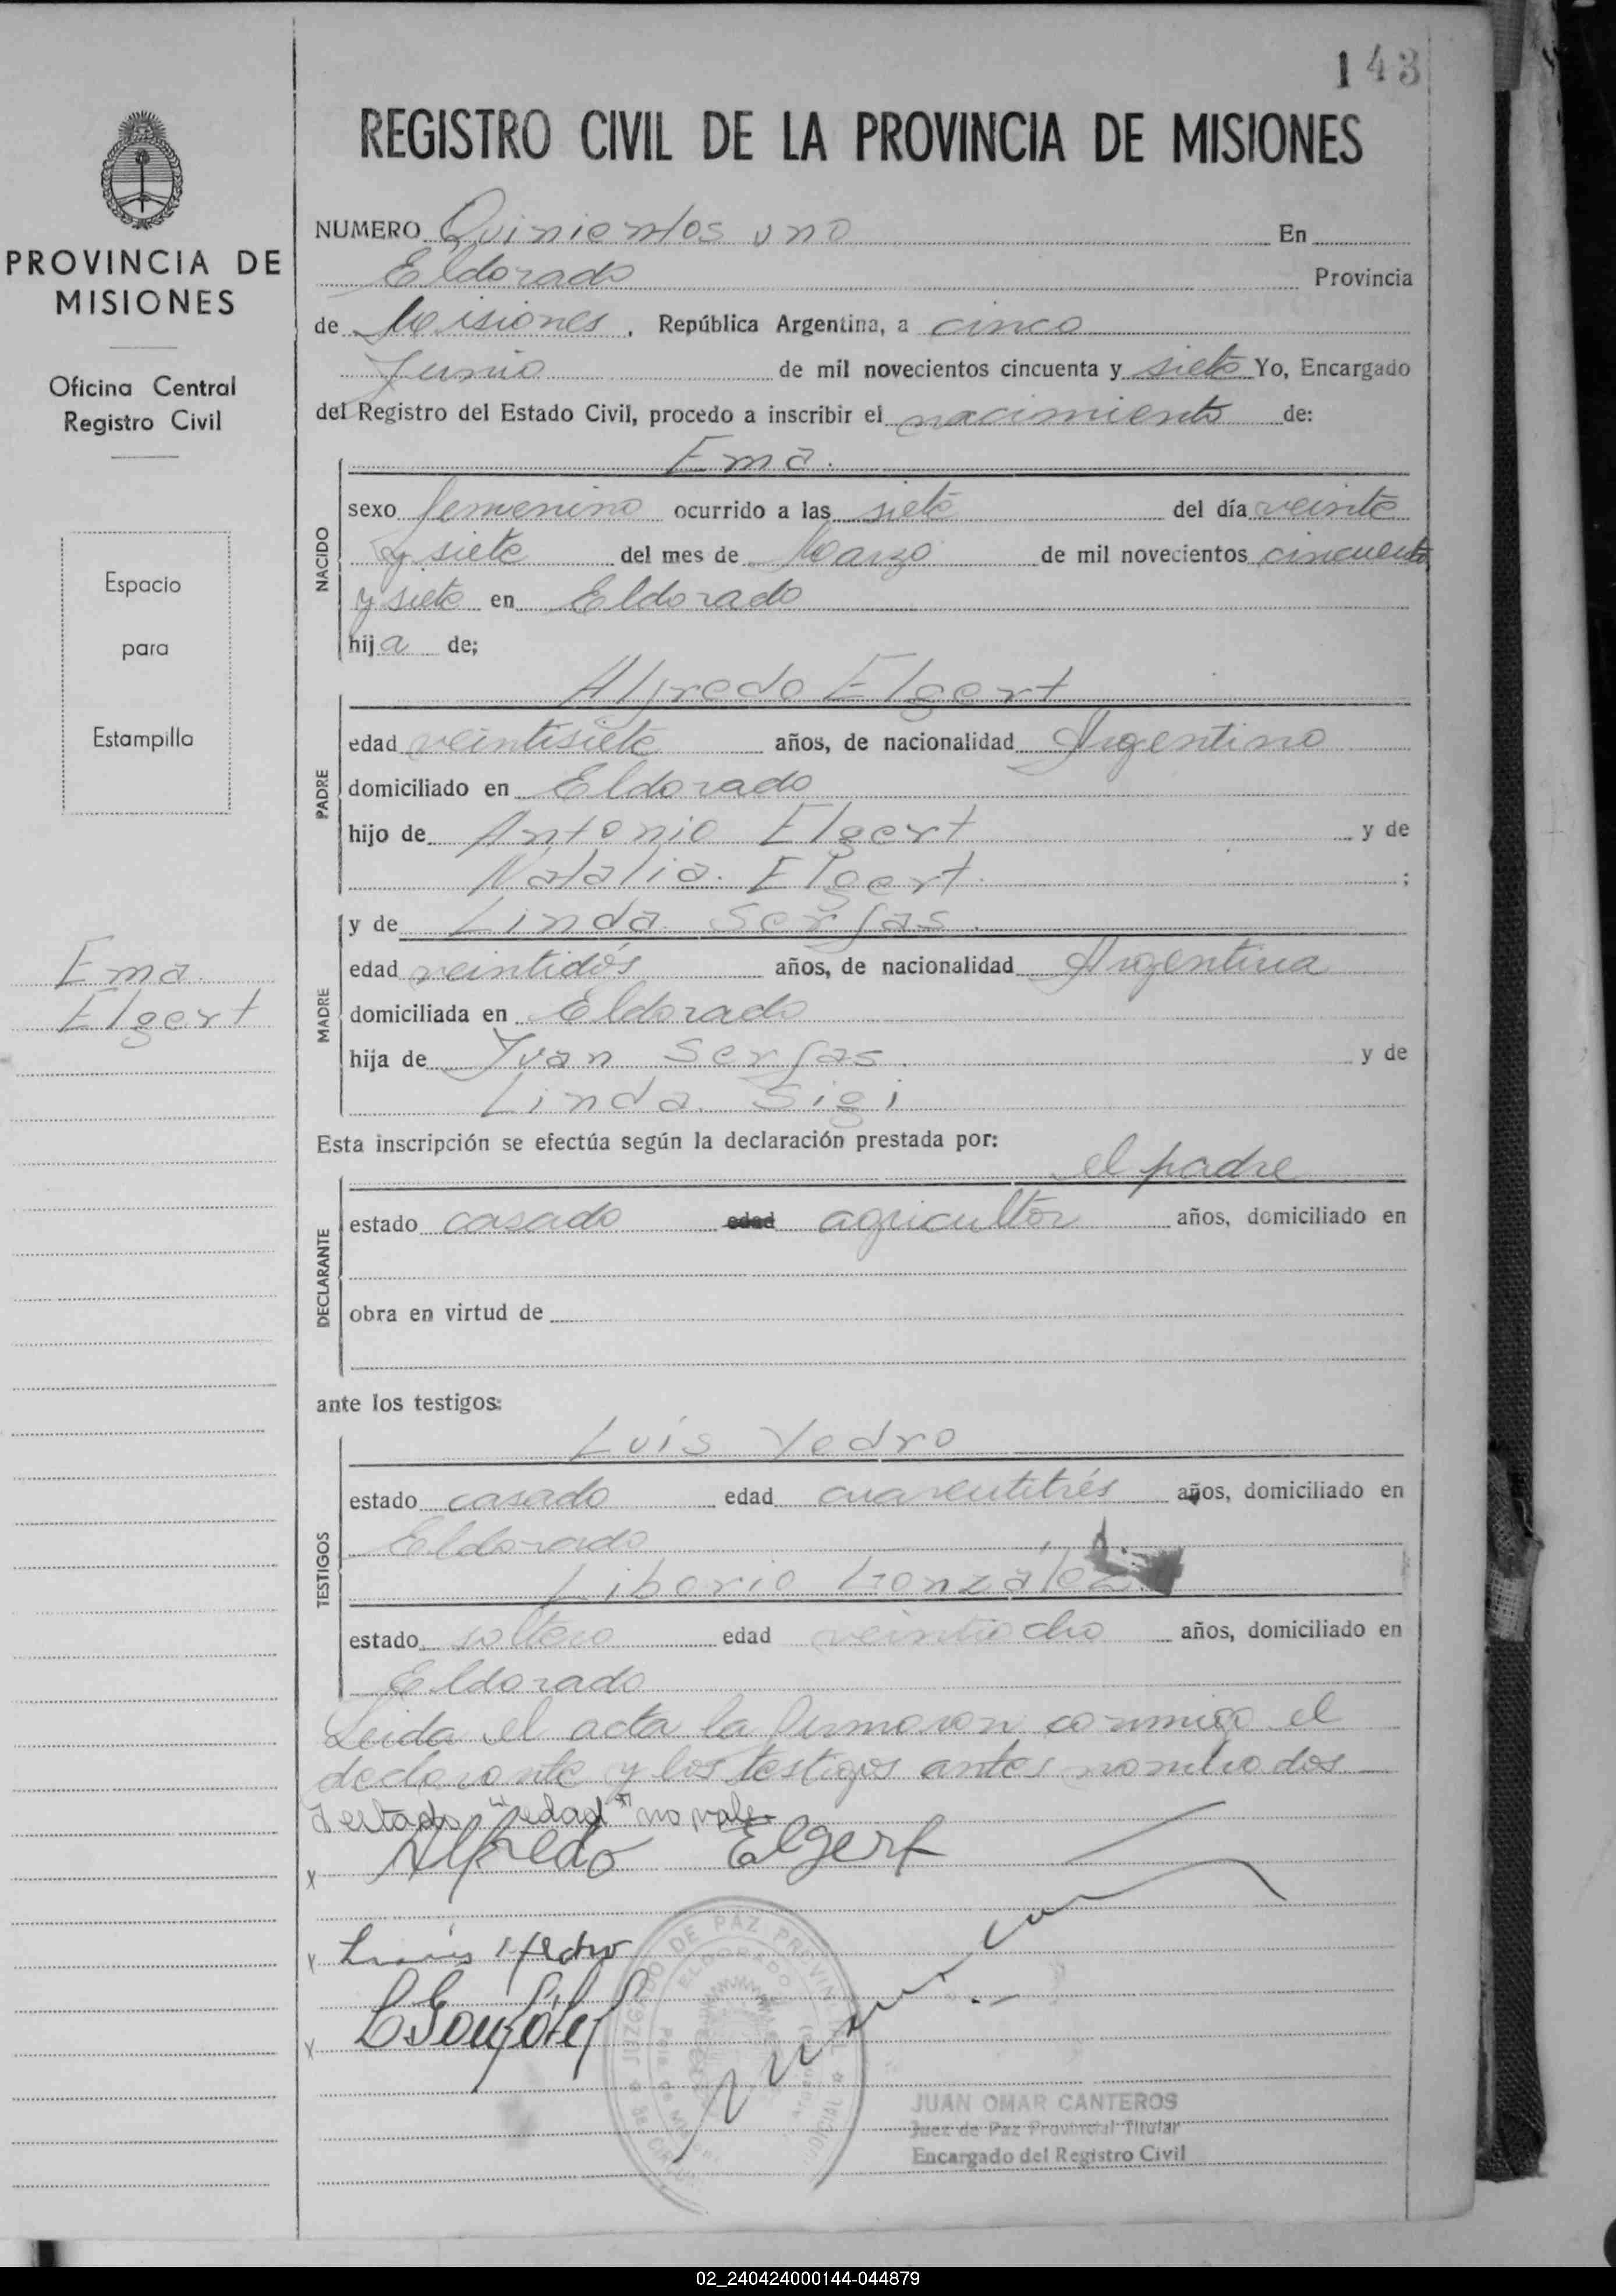 143
REGISTRO CIVIL DE LA PROVINCIA DE MISIONES
PROVINCIA DE
MISIONES
Oficina Central
Registro Civil
Espacio
para
Estampilla
Ema
Elgert
NUMERO Quinientos uno En
Eldorado Provincia
de Misiones, República Argentina, a cinco
Junio de mil novecientos cincuenta y siete Yo, Encargado
del Registro del Estado Civil, procedo a inscribir el nacimiento de:
NACIDO
Ema.
sexo femenino ocurrido a las siete del día veinte
y siete del mes de Marzo de mil novecientos cincuenta
y siete en Eldorado
hija de;
PADRE
Alfredo Elgert
edad veintisiete años, de nacionalidad Argentino
domiciliado en Eldorado
hijo de Antonio Elgert y de
Natalia Elgert ;
MADRE
y de Linda Serfas.
edad veintidós años, de nacionalidad Argentina
domiciliada en Eldorado
hija de Juan Serfas. y de
Linda Sigi
Esta inscripción se efectúa según la declaración prestada por:
el padre
DECLARANTE
estado casado edad agricultor años, domiciliado en
obra en virtud de
ante los testigos:
TESTIGOS
Luis Yedro
estado casado edad cuarentitrés años, domiciliado en
Eldorado
Liborio González
estado soltero edad veintiocho años, domiciliado en
Eldorado
Leida el acta la firmaron conmigo el
declarante y los testigos antes nombrados
Testado "edad" no vale
x Alfredo Elgert
x Luis Yedro
x LGonzález
JUZGADO DE PAZ PROVINCIAL
ELDORADO
JUAN OMAR CANTEROS
Juez de Paz Provincial Titular
Encargado del Registro Civil
02_240424000144-044879